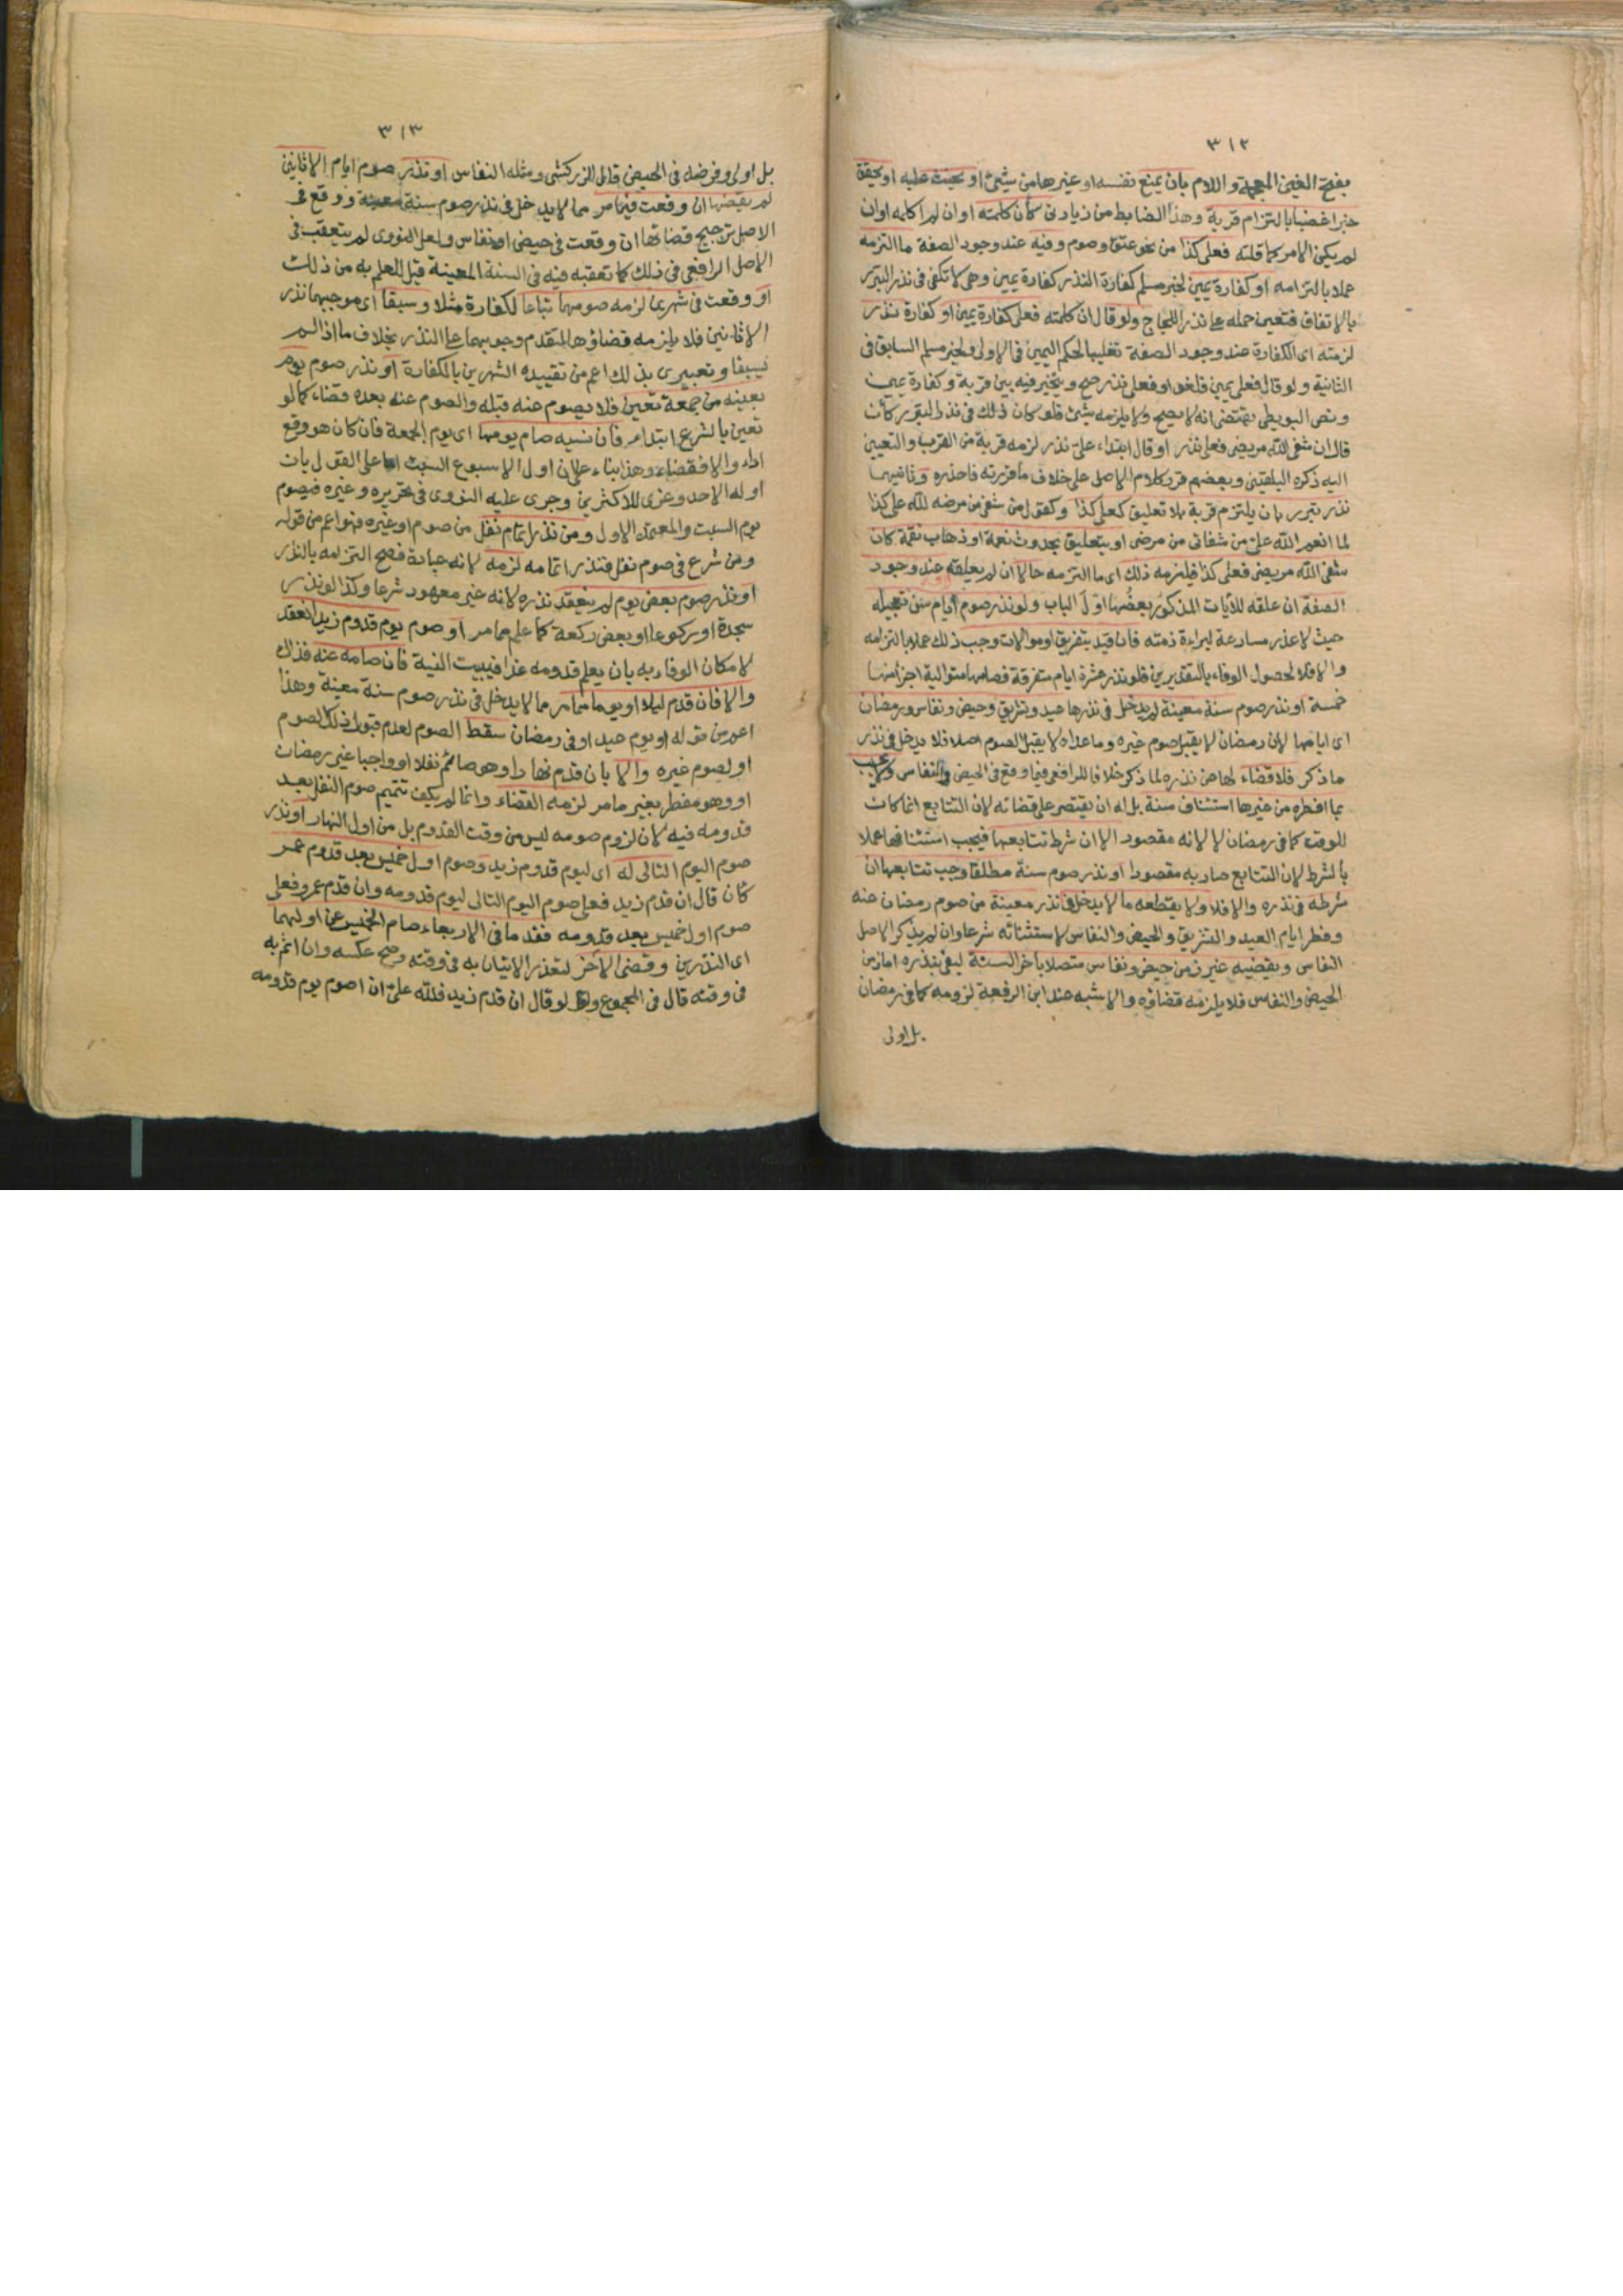 ٣١٢
بفتح الغين المعجمة واللام بان يمنع نفسه او غيرها من شيئ او يحث عليه او يحقق
خبرا غضبا بالتزام قربة وهذا الضابط من زيادتى كأن كلمته او ان لم اكلمه او ان
لم يكن الامر كما قلته فعلى كذا من نحو عتق وصوم وفيه عند وجود الصفة ما التزمه
عملا بالتزامه او كفارة يمين لخبر مسلم كفارة النذر كفارة يمين وهى لا تكفى فى نذر التبرر
بالاتفاق فتعين حمله على نذر اللجاج ولو قال ان كلمته فعلى كفارة يمين او كفارة نذر
لزمته اى الكفارة عند وجود الصفة تغليبا لحكم اليمين فى الاولى ولخبر مسلم السابق فى
الثانية ولو قال فعلى يمين فلغو او فعلى نذر صح ويتخير فيه بين قربة وكفارة يمين
ونص البويطى يقتضى انه لا يصح ولا يلزمه شيئ فلو كان ذلك فى نذر التبرر كأن
قال ان شفى الله مريضى فعلى نذر او قال ابتداء على نذر لزمه قربة من القرب والتعيين
اليه ذكره البلقينى وبعضهم قرر كلام الاصل على خلاف ما قررته فاحذره وثانيهما
نذر تبرر بان يلتزم قربة بلا تعليق كعلى كذا وكقول من شفى من مرضه لله على كذا
لما انعم الله على من شفائى من مرضى او بتعليق بحدوث نعمة او ذهاب نقمة كان
شفى الله مريضى فعلى كذا فيلزمه ذلك اى ما التزمه حالا ان لم يعلقه عند وجود
الصفة ان علقه للآيات المذكور بعضها اول الباب ولو نذر صوم ايام سن تعجيله
حيث لا عذر مسارعة لبراءة ذمته فان قيد بتفريق او موالات وجب ذلك عملا بالتزامه
والا فلا لحصول الوفاء بالتقديرين فلو نذر عشرة ايام متفرقة فصامها متوالية اجزأ منها
خمسة او نذر صوم سنة معينة لم يدخل فى نذرها عيد وتشريق وحيض ونفاس ورمضان
اى ايامها لان رمضان لا يقبل صوم غيره وما عداه لا يقبل الصوم اصلا فلا يدخل فى نذر
ما ذكر فلا قضاء لها عن نذره لما ذكر خلافا للرافعى فيما وقع فى الحيض والنفاس ولا يجب
بما افطره من غيرها استئناف سنة بل له ان يقتصر على قضائه لان التتابع انما كان
للوقت كما فى رمضان لا لانه مقصود الا ان شرط تتابعها فيجب استئنافها عملا
بالشرط لان التتابع صار به مقصودا او نذر صوم سنة مطلقا وجب تتابعها ان
شرطه فى نذره والا فلا ولا يقطعه ما لا يدخل فى نذر معينة من صوم رمضان عنه
وفطر ايام العيد والتشريق والحيض والنفاس لاستثنائه شرعا وان لم يذكر الاصل
النفاس ويقضيه غير زمن حيض ونفاس متصلا بآخر السنة ليفى بنذره اما زمن
الحيض والنفاس فلا يلزمه قضاؤه والاشبه عند ابن الرفعة لزومه كما فى رمضان
بل اولى
٣١٣
بل اولى وفرضه فى الحيض قال الزركشى ومثله النفاس او نذر صوم ايام الاثانين
لم يقضها ان وقعت فيما مر مما لا يدخل فى نذر صوم سنة معينة ووقع فى
الاصل ترجيح قضائها ان وقعت فى حيض او نفاس ولعل النووى لم يتعقب فى
الاصل الرافعى فى ذلك كما تعقبه فيه فى السنة المعينة قبل للعلم به من ذلك
او وقعت فى شهرين لزمه صومهما تباعا لكفارة مثلا وسبقا اى موجبهما نذر
الاثانين فلا يلزمه قضاؤها لتقدم وجوبهما على النذر بخلاف ما اذا لم
يسبقا وتعبيرى بذلك اعم من تقييده الشهرين بالكفارة او نذر صوم يوم
بعينه من جمعة تعين فلا يصوم عنه قبله والصوم عنه بعده قضاء كما لو
تعين بالشرع ابتداء فان نسيه صام يومها اى يوم الجمعة فان كان هو وقع
اداء والا فقضاء وهذا بناء على ان اول الاسبوع السبت اما على القول بان
اوله الاحد وعزى للاكثرين وجرى عليه النووى فى تحريره وغيره فيصوم
يوم السبت والمعتمد الاول ومن نذر اتمام نفل من صوم او غيره فهو اعم من قوله
ومن شرع فى صوم نفل فنذر اتمامه لزمه لانه عبادة فصح التزامه بالنذر
او نذر صوم بعض يوم لم ينعقد نذره لانه غير معهود شرعا وكذا لو نذر
سجدة او ركوعا او بعض ركعة كما علم مما مر او صوم يوم قدوم زيد انعقد
لامكان الوفاء به بان يعلم قدومه غدا فيبيت النية فان صامه عنه فذاك
والا فان قدم ليلا او يوما مما مر مما لا يدخل فى نذر صوم سنة معينة وهذا
اعم من قوله او يوم عيد او فى رمضان سقط الصوم لعدم قبول ذلك لصوم
او لصوم غيره والا بان قدم نهارا وهو صائم نفلا او واجبا غير رمضان
او وهو مفطر بغير ما مر لزمه القضاء وانما لم يكف تتميم صوم النفل بعد
قدومه فيه لان لزوم صومه ليس من وقت القدوم بل من اول النهار او نذر
صوم اليوم التالى له اى ليوم قدوم زيد وصوم اول خميس بعد قدوم عمر
كأن قال ان قدم زيد فعلى صوم اليوم التالى ليوم قدومه وان قدم عمرو فعلى
صوم اول خميس بعد قدومه فقدما فى الاربعاء صام الخميس عن اولهما
اى النذرين وقضى الآخر لتعذر الاتيان به فى وقته وصح عكسه وان اثم به
فى وقته قال فى المجموع ولو قال ان قدم زيد فلله على ان اصوم يوم قدومه